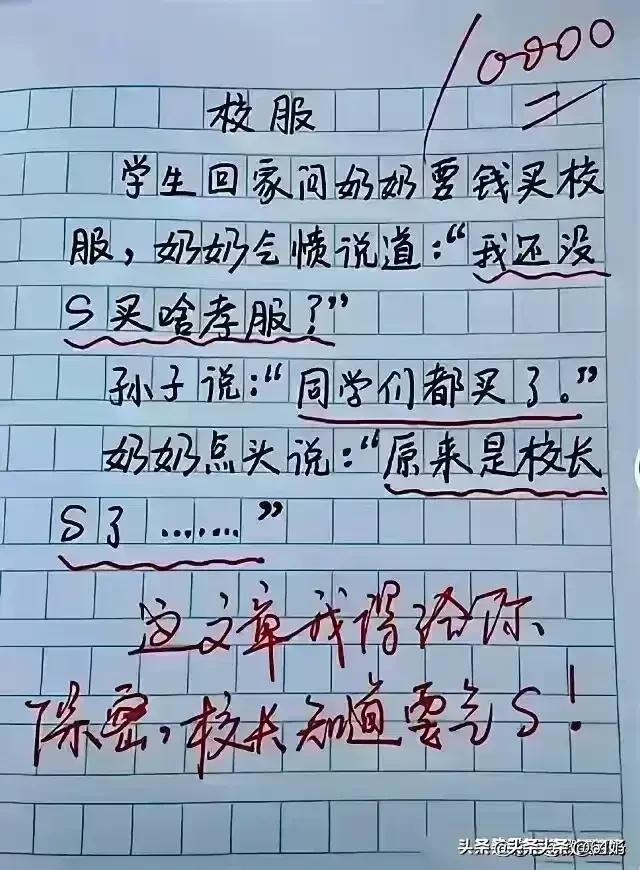 10000
校服
学生回家问奶奶要钱买校
服,奶奶气愤说道:“我还没
S买啥孝服?”
孙子说:“同学们都买了。”
奶奶点头说:“原来是校长
S了.......”
这文章我得给你
保密,校长知道要气S!